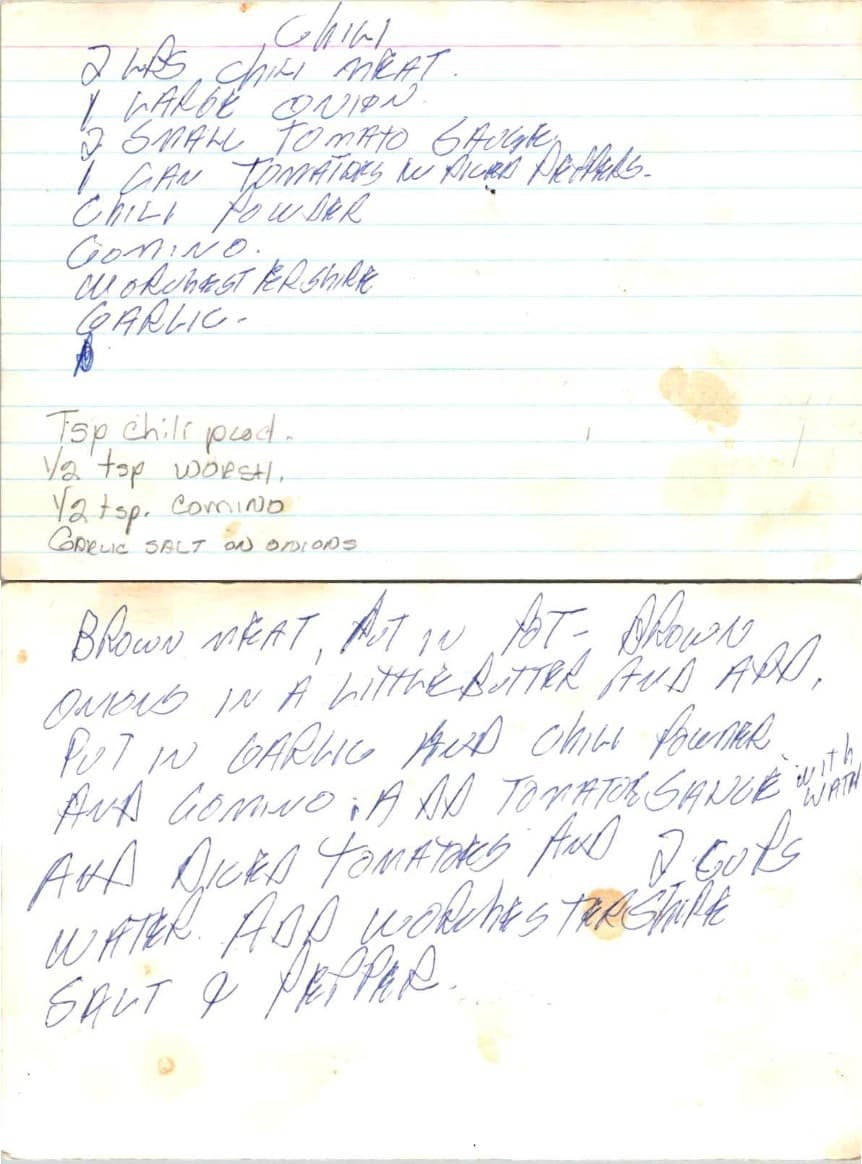 CHILI
2 LBS CHILI MEAT.
1 LARGE ONION.
2 SMALL TOMATO SAUCE
1 CAN TOMATOES W DICED PEPPERS.
CHILI POWDER
COMINO.
WORCHESTERSHIRE
GARLIC.
Tsp chili powd.
1/2 tsp WORSH.
1/2 tsp. COMINO
GARLIC SALT ON ONIONS
BROWN MEAT, PUT IN POT - BROWN
ONIONS IN A LITTLE BUTTER AND ADD.
PUT IN GARLIC AND CHILI POWDER
AND COMINO. ADD TOMATOE SAUCE with WATER
AND DICED TOMATOES AND 2 CUPS
WATER. ADD WORCHESTERSHIRE
SALT & PEPPER.